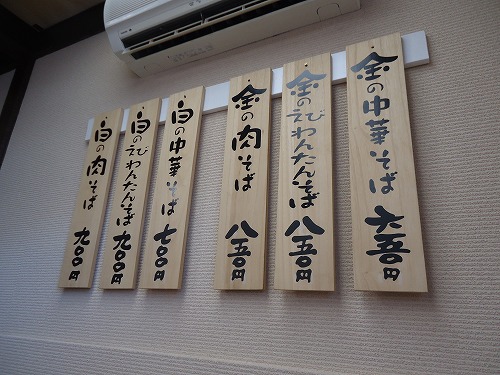 金の中華そば 六五〇円
金のえびわんたんそば 八五〇円
金の肉そば 八五〇円
白の中華そば 七〇〇円
白のえびわんたんそば 九〇〇円
白の肉そば 九〇〇円